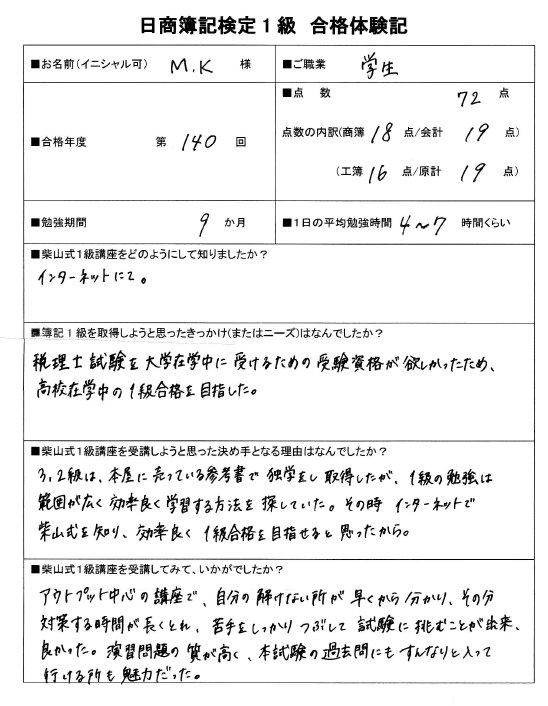 日商簿記検定１級 合格体験記
■お名前(イニシャル可) M.K 様
■ご職業 学生
■合格年度 第 140 回
■点 数 72 点
点数の内訳(商簿 18 点/会計 19 点)
(工簿 16 点/原計 19 点)
■勉強期間 9 か月
■１日の平均勉強時間 4〜7 時間くらい
■柴山式１級講座をどのようにして知りましたか？
インターネットにて。
■簿記１級を取得しようと思ったきっかけ(またはニーズ)はなんでしたか？
税理士試験を大学在学中に受けるための受験資格が欲しかったため、
高校在学中の1級合格を目指した。
■柴山式１級講座を受講しようと思った決め手となる理由はなんでしたか？
3,2級は、本屋に売っている参考書で独学をし取得したが、1級の勉強は
範囲が広く効率良く学習する方法を探していた。その時インターネットで
柴山式を知り、効率良く1級合格を目指せると思ったから。
■柴山式１級講座を受講してみて、いかがでしたか？
アウトプット中心の講座で、自分の解けない所が早くから分かり、その分
対策する時間が長くとれ、苦手をしっかりつぶして試験に挑むことが出来、
良かった。演習問題の質が高く、本試験の過去問にもすんなりと入って
行ける所も魅力だった。